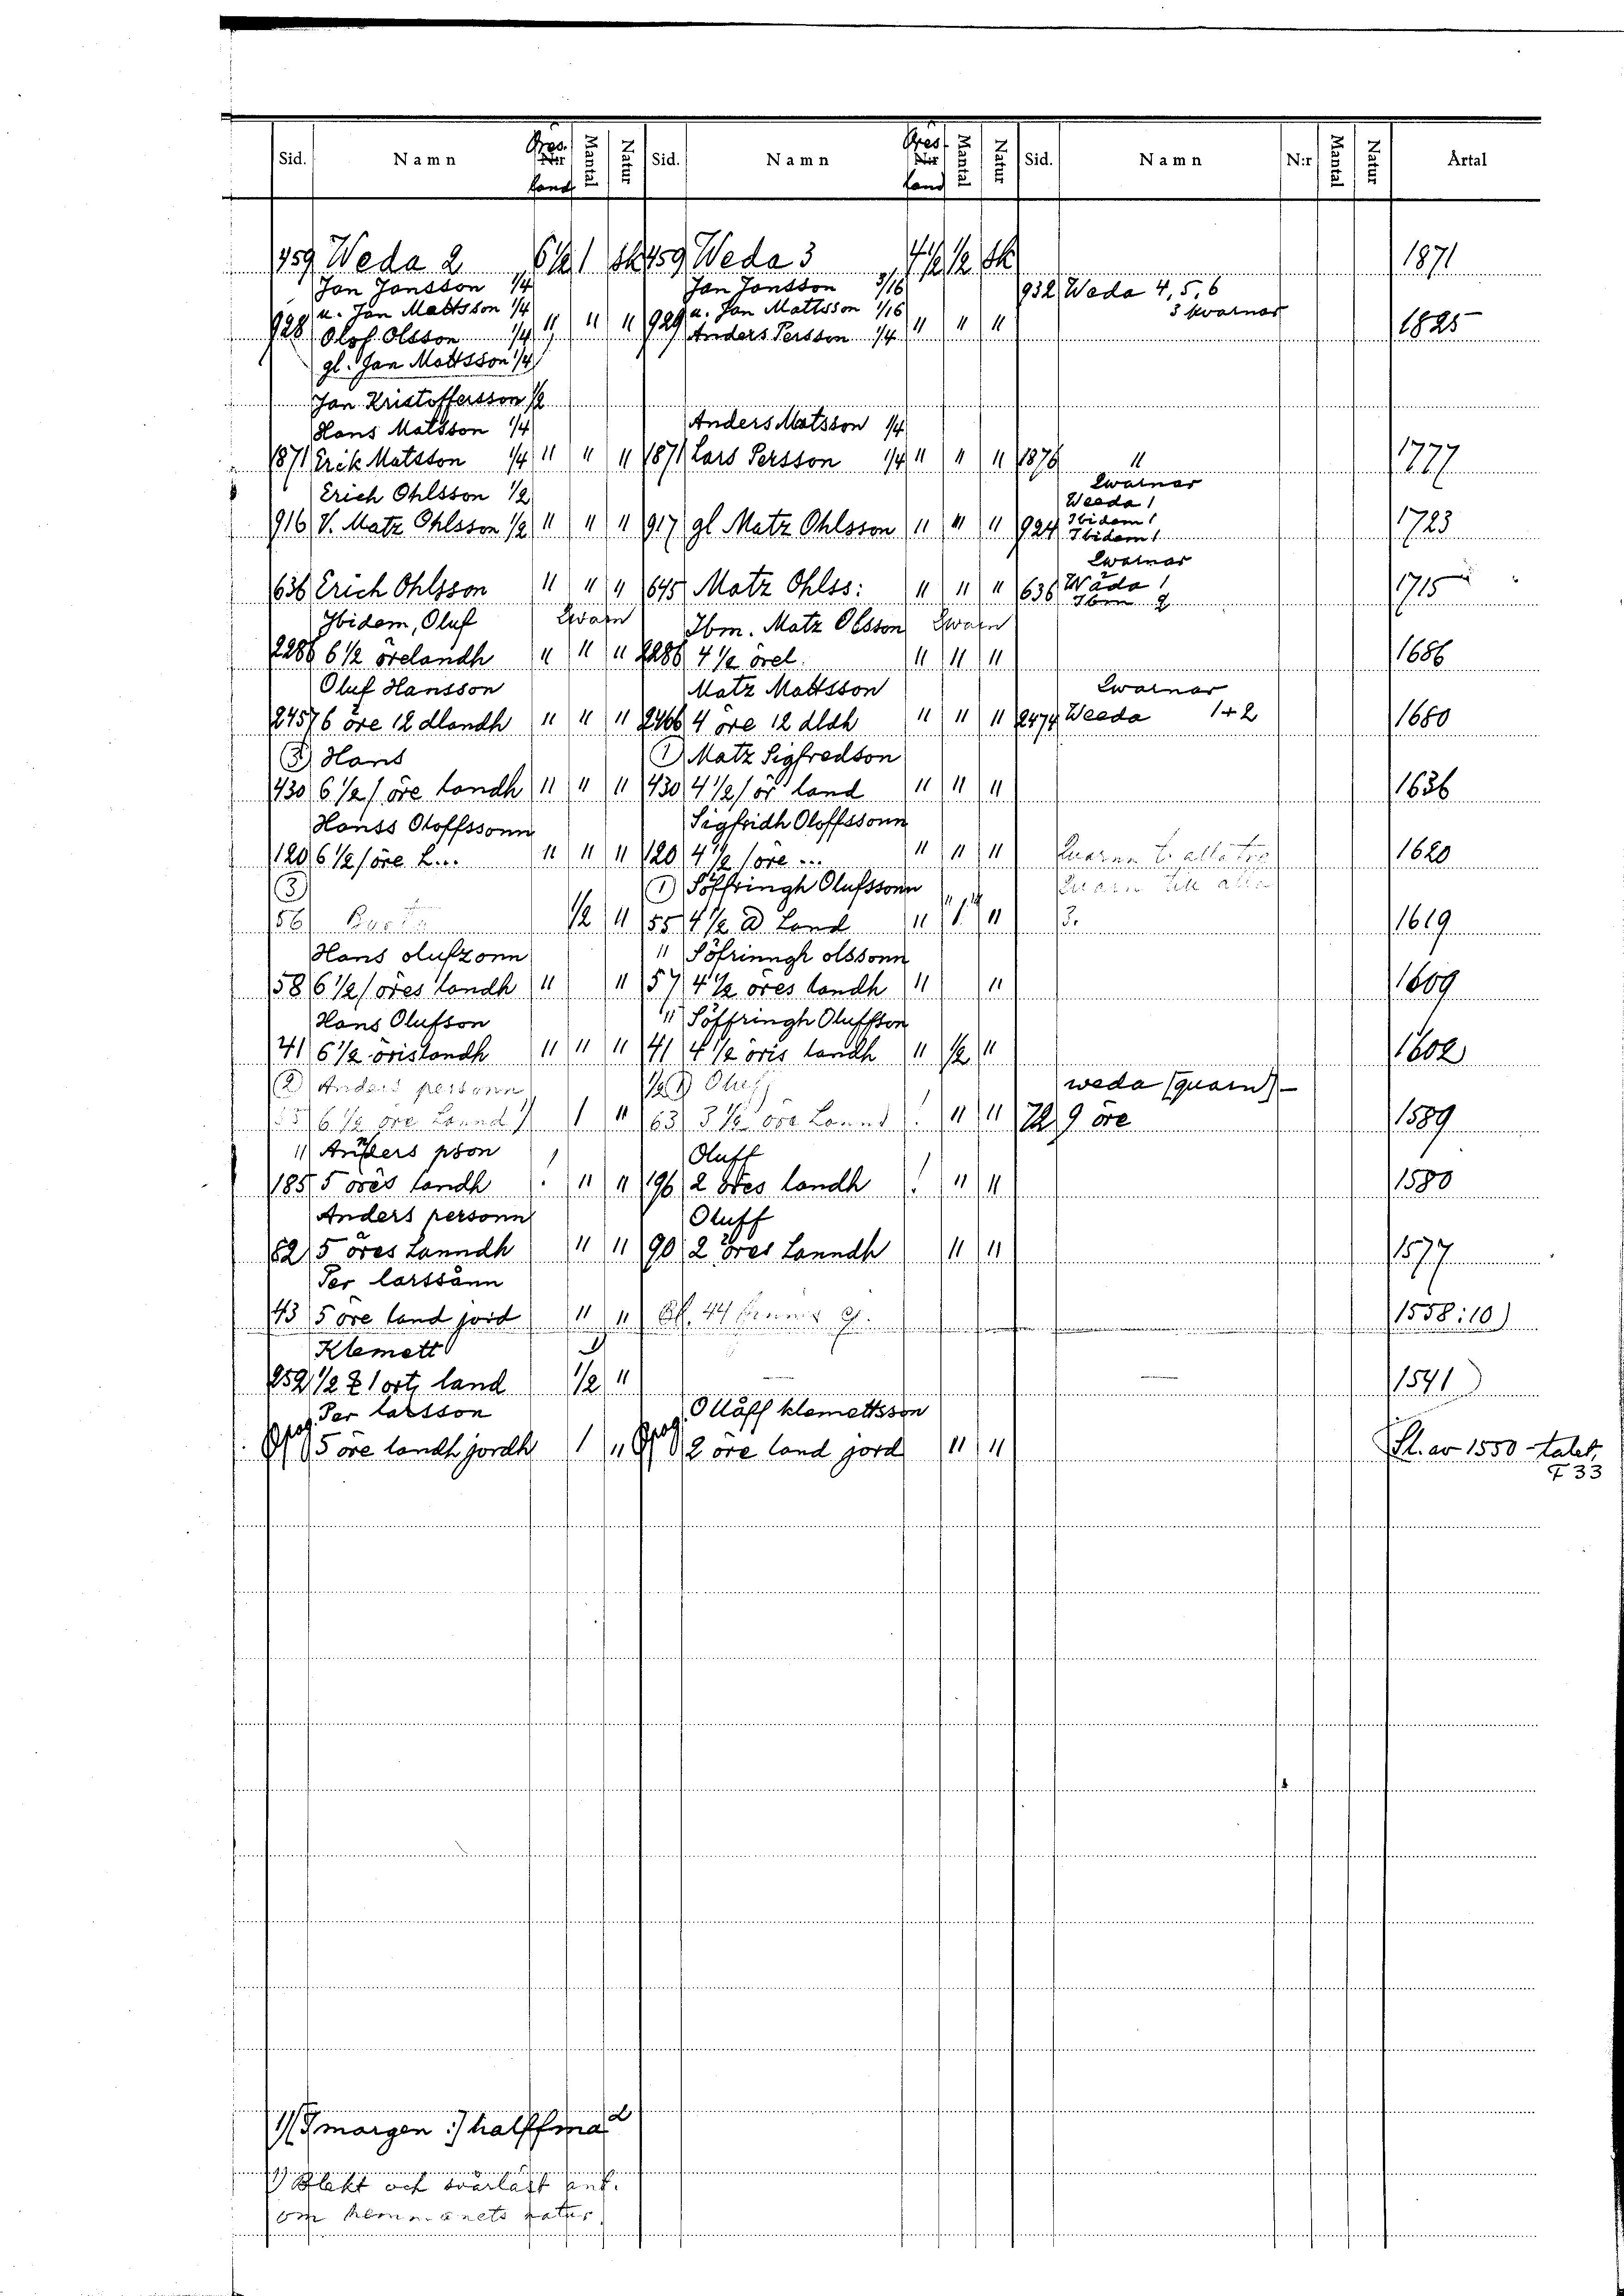 Sid. Namn Öres land Mantal Natur Sid. Namn Öres land Mantal Natur Sid. Namn N:r Mantal Natur Årtal
459 Weda 2 6½ 1 sk 459 Weda 3 4½ ½ sk 1871
Jan Jansson 1/4 Jan Jansson 3/16 932 Weda 4, 5, 6
u. Jan Mattsson 1/4 u. Jan Mattsson 1/16 3 kvarnar
928 Olof Olsson 1/4 " " " 929 Anders Persson 1/4 " " " 1825
gl. Jan Mattsson 1/4
Jan Kristoffersson 1/2
Hans Matsson 1/4 Anders Matsson 1/4
1871 Erik Matsson 1/4 " " " 1871 Lars Persson 1/4 " " " 1876 " 1777
Erich Ohlsson 1/2 Qwarnar
Weeda 1
916 V. Matz Ohlsson 1/2 " " " 917 gl Matz Ohlsson " " " 924 Ibidem 1 1723
Ibidem 1
Qwarnar
636 Erich Ohlsson " " " 645 Matz Ohlss: " " " 636 Wäda 1 1715
Ibm 2
Ibidem, Oluf Qwarn Ibm. Matz Olsson Qwarn
2286 6 1/2 örelandh " " " 2286 4 1/2 örel. " " " 1686
Oluf Hansson Matz Mattsson Qwarnar
2457 6 öre 12 dlandh " " " 2466 4 öre 12 dldh " " " 2474 Weeda 1+2 1680
3) Hans 1) Matz Sigfredson
430 6 1/2 / öre landh " " " 430 4 1/2 / ör land " " " 1636
Hanss Oloffssonn Sigfridh Oloffssonn
120 6 1/2 / öre L... " " " 120 4 1/2 / öre ... " " " Quarnn t. alla tre 1620
3) 1) Söffringh Olufssonn Quarn till alla
56 1/2 " 55 4 1/2 Land " 1 " 3. 1619
Hans olufzonn " Söfrinngh olssonn
58 6 1/2 / öres landh " " 57 4 1/2 öres landh " " 1609
Hans Olufson " Söffringh Oluffson
41 6 1/2 örislandh " " " 41 4 1/2 öris landh " 1/2 " 1602
2) Anders personn Oluf weda (quarn)
55 6 1/2 öre Lannd 1 " 63 3 1/2 öre Lannd " " 72 9 öre 1589
1) Anders pson Oluff
185 5 öres landh " " 196 2 öres landh " " 1580
Anders personn Oluff
82 5 öres Lanndh " " 90 2 öres Lanndh " " 1577
Per larssånn
43 5 öre land jord " " 1558:10)
Klemett
252 1/2 land 1/2 " 1541)
Per larsson Olåff klemettsson
5 öre landh jordh 1 " 2 öre land jord " " Sl. av 1550-talet,
F 33
1) (I margen :) halffma d
1) Blekt och svårläst ant.
om hemmanets natur